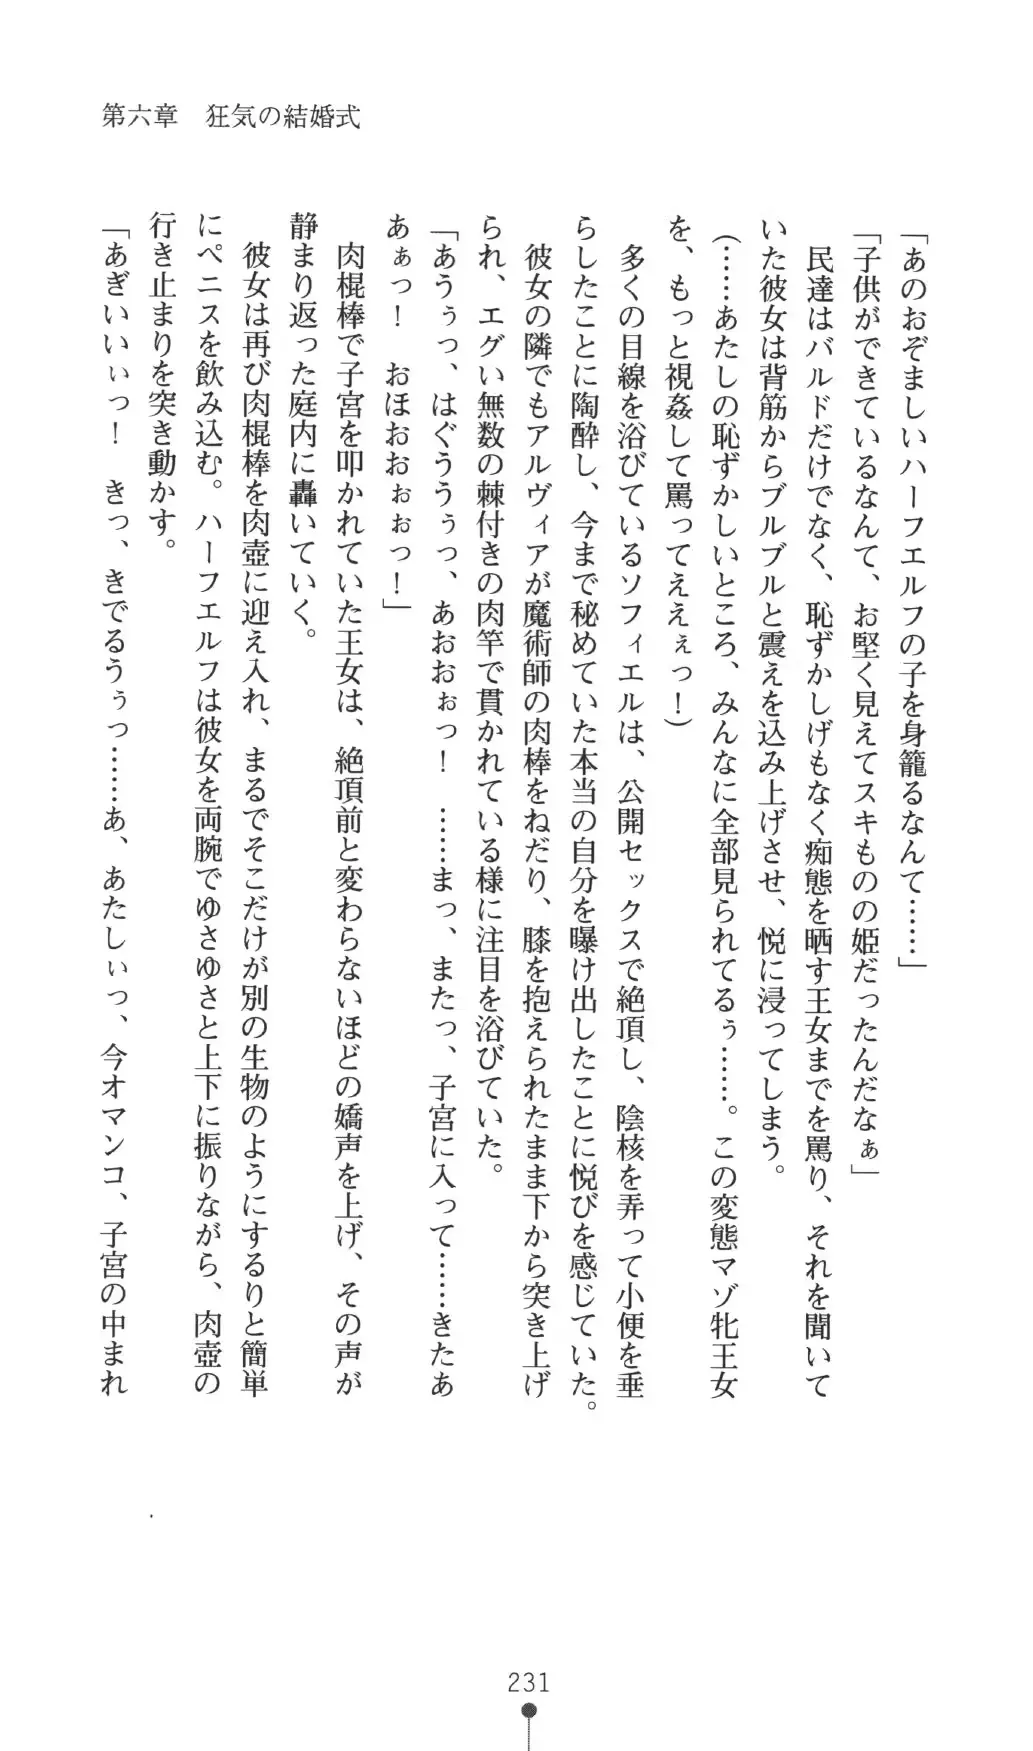 第六章　狂気の結婚式
「あのおぞましいハーフエルフの子を身籠るなんて……」
「子供ができているなんて、お堅く見えてスキものの姫だったんだなぁ」
民達はバルドだけでなく、恥ずかしげもなく痴態を晒す王女までを罵り、それを聞いて
いた彼女は背筋からブルブルと震えを込み上げさせ、悦に浸ってしまう。
(……あたしの恥ずかしいところ、みんなに全部見られてるぅ……。この変態マゾ牝王女
を、もっと視姦して罵ってえぇぇっ！)
多くの目線を浴びているソフィエルは、公開セックスで絶頂し、陰核を弄って小便を垂
らしたことに陶酔し、今まで秘めていた本当の自分を曝け出したことに悦びを感じていた。
彼女の隣でもアルヴィアが魔術師の肉棒をねだり、膝を抱えられたまま下から突き上げ
られ、エグい無数の棘付きの肉竿で貫かれている様に注目を浴びていた。
「あうぅっ、はぐううぅっ、あおおぉっ！　……まっ、またっ、子宮に入って……きたあ
あぁっ！　おほおおぉぉっ！」
肉棍棒で子宮を叩かれていた王女は、絶頂前と変わらないほどの嬌声を上げ、その声が
静まり返った庭内に轟いていく。
彼女は再び肉棍棒を肉壺に迎え入れ、まるでそこだけが別の生物のようにするりと簡単
にペニスを飲み込む。ハーフエルフは彼女を両腕でゆさゆさと上下に振りながら、肉壺の
行き止まりを突き動かす。
「あぎいいぃっ！　きっ、きでるうぅっ……あ、あたしぃっ、今オマンコ、子宮の中まれ
231